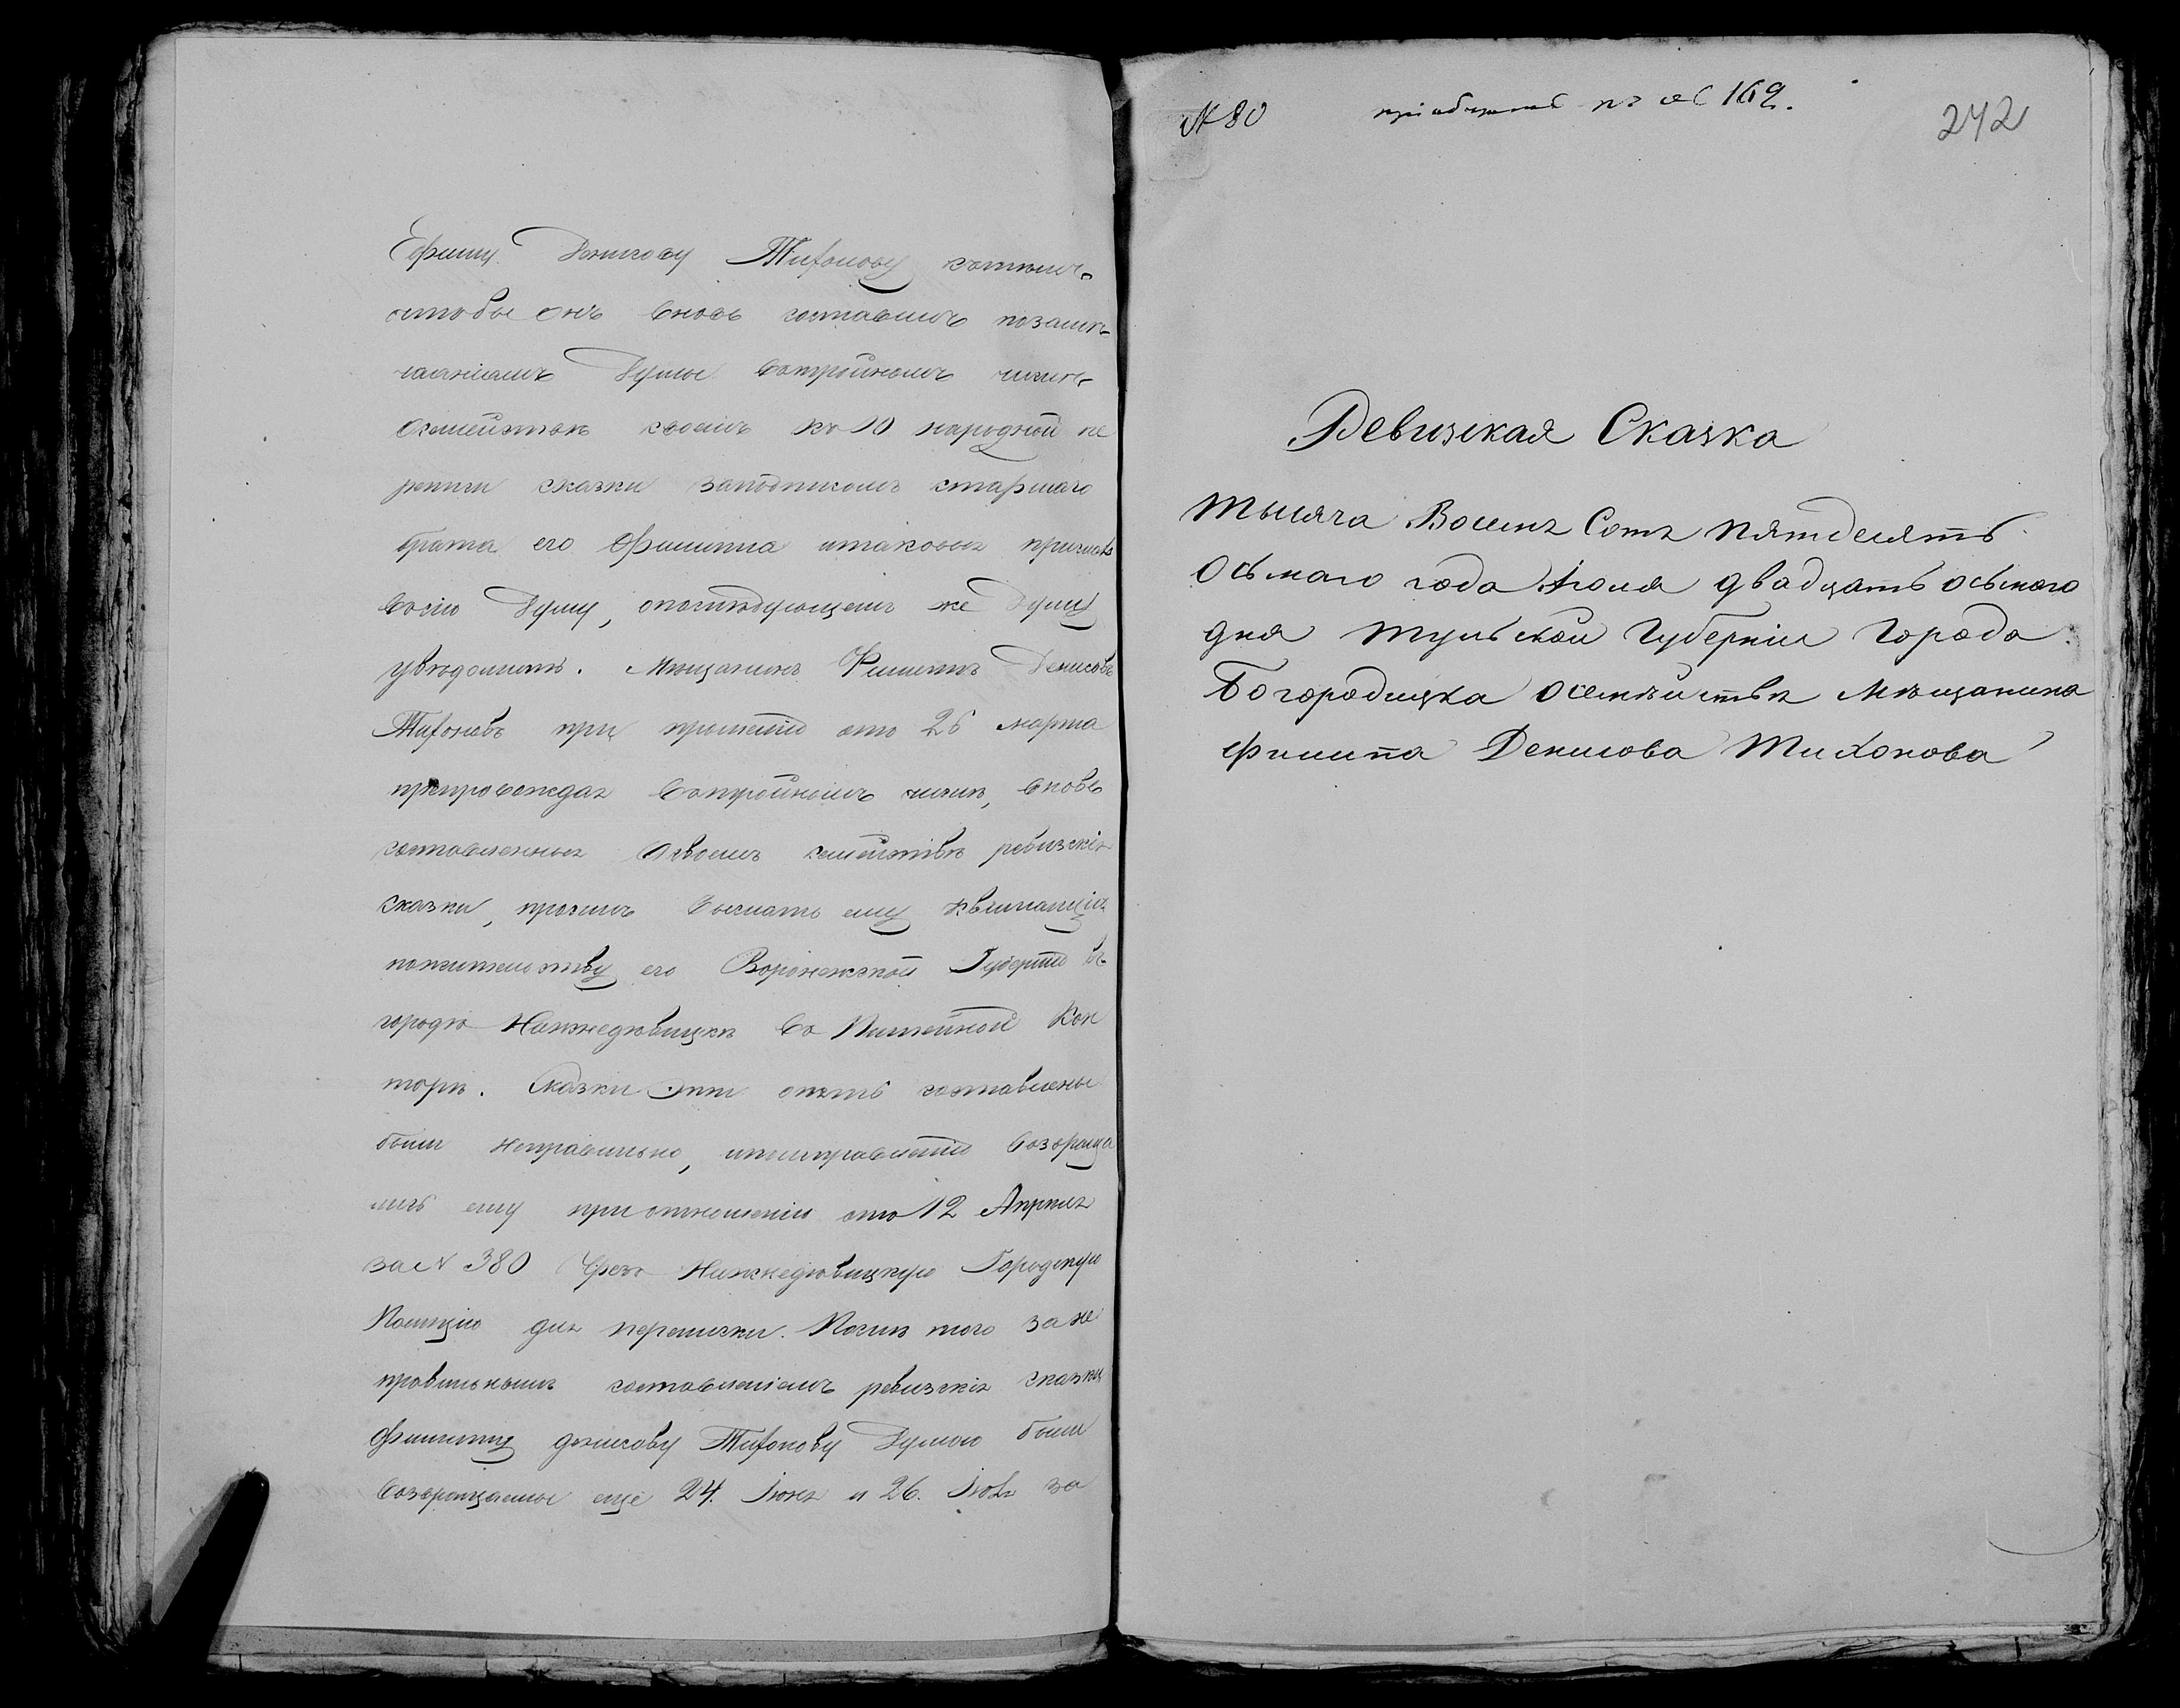 Ефиму Денисову Тихонову стѣмъ-
чтобы онъ вновь составилъ позамѣ-
чаніямъ Думы вотройномъ числѣ
Осемействѣ своемъ по 10 народной пе
реписи сказки заподписомъ старшаго
брата его Филиппа итаковыя прислалъ
Восію Думу, опослѣдующемъ же Думу
увѣдомить. Мѣщанинъ Филиппъ Денисовъ
Тихоновъ при прошеніи отъ 26 марта
препровождая вотройномъ числѣ, вновь
составленныя Освоемъ семействѣ ревизскія
сказки, просилъ выслать ему квитанцію
пожительству его Воронежской Губерніи въ
городѣ Нижнедѣвицкѣ въ Питейной Кон
торѣ. Сказки эти опять составлены
были неправильно, инеисправности возвраща
лись ему при отношеніи отъ 12 Апрѣля
за № 380 Чрезъ Нижнедѣвицкую Городскую
Полицію для переписки. Послѣ того за не
правильнымъ составленіемъ ревизскія сказки
Филиппу Денисову Тихонову Думою были
возвращаемы еще 24. Іюня и 26. Іюля за
№ 80 пріобщить къ № 169.
242
Ревизская Сказка
тысяча Восемь Сотъ пятдесятъ
Осьмаго года Іюля двадцать осьмого
дня тульской Губерніи Города
Богородицка осемѣйствѣ Мѣщанина
Филипа Денисова Тихонова